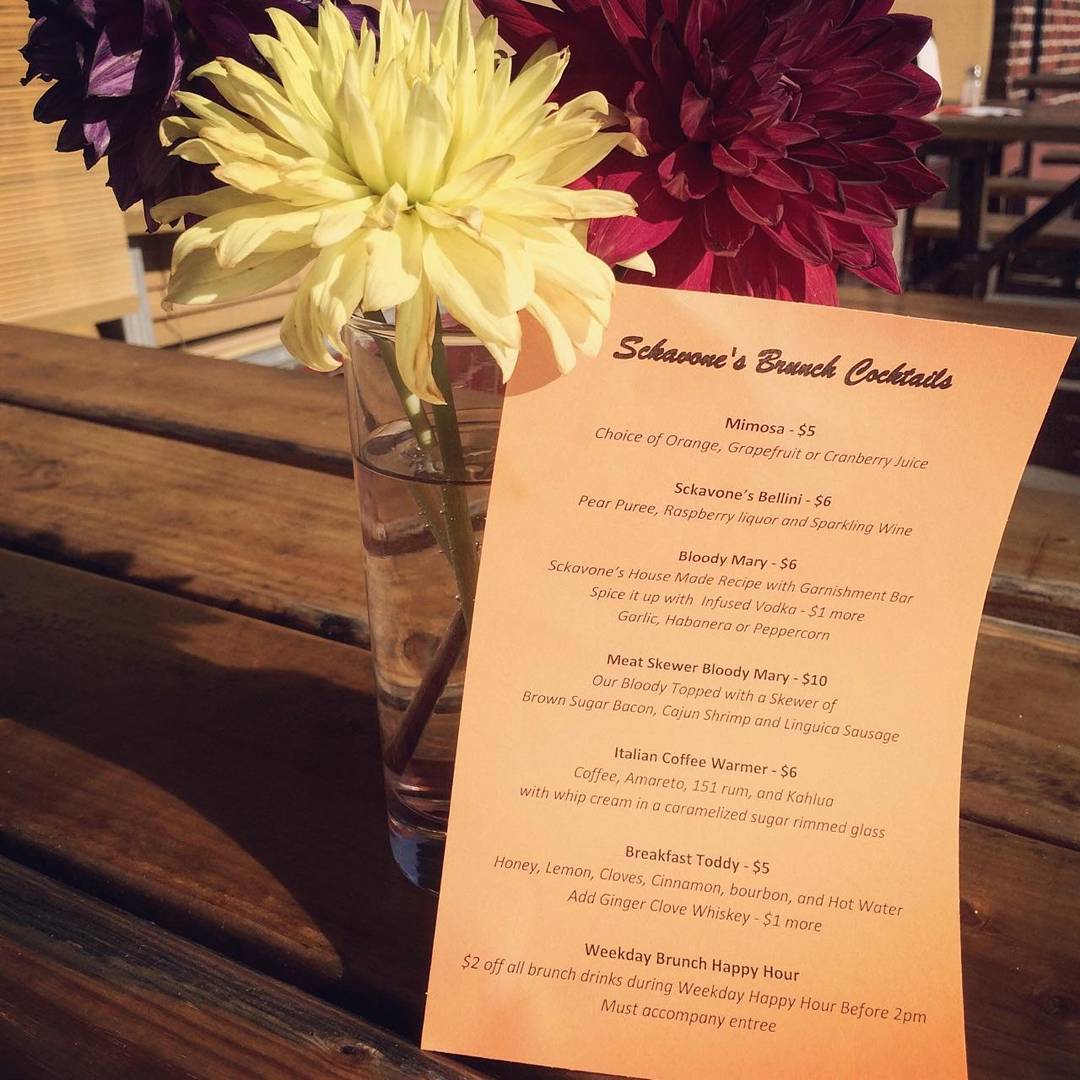 Sckavone's Brunch Cocktails
Mimosa - $5
Choice of Orange, Grapefruit or Cranberry Juice
Sckavone's Bellini - $6
Pear Puree, Raspberry liquor and Sparkling Wine
Bloody Mary - $6
Sckavone's House Made Recipe with Garnishment Bar
Spice it up with Infused Vodka - $1 more
Garlic, Habanera or Peppercorn
Meat Skewer Bloody Mary - $10
Our Bloody Topped with a Skewer of
Brown Sugar Bacon, Cajun Shrimp and Linguica Sausage
Italian Coffee Warmer - $6
Coffee, Amareto, 151 rum, and Kahlua
with whip cream in a caramelized sugar rimmed glass
Breakfast Toddy - $5
Honey, Lemon, Cloves, Cinnamon, bourbon, and Hot Water
Add Ginger Clove Whiskey - $1 more
Weekday Brunch Happy Hour
$2 off all brunch drinks during Weekday Happy Hour Before 2pm
Must accompany entree